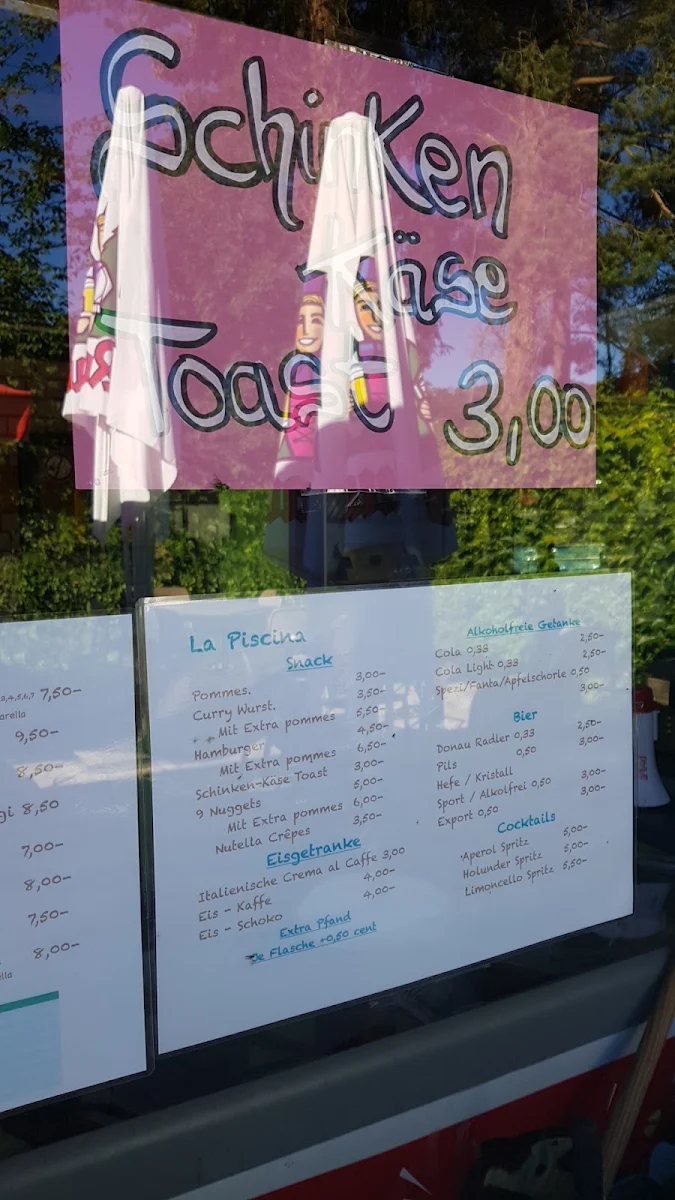 Schinken
Käse
Toast 3,00
3,4,5,6,7 7,50-
arella
9,50-
8,50-
gi 8,50
7,00-
8,00-
7,50-
8,00-
lla
La Piscina
Snack
Pommes. 3,00-
Curry Wurst. 3,50-
Mit Extra pommes 5,50-
Hamburger 4,50-
Mit Extra pommes 6,50-
Schinken-Käse Toast 3,00-
9 Nuggets 5,00-
Mit Extra pommes 6,00-
Nutella Crêpes 3,50-
Eisgetranke
Italienische Crema al Caffe 3,00
Eis - Kaffe 4,00-
Eis - Schoko 4,00-
Extra Pfand
Je Flasche +0,50 cent
Alkoholfreie Getanke
Cola 0,33 2,50-
Cola Light 0,33 2,50-
Spezi/Fanta/Apfelschorle 0,50
3,00-
Bier
Donau Radler 0,33 2,50-
Pils 0,50 3,00-
Hefe / Kristall
Sport / Alkolfrei 0,50 3,00-
Export 0,50 3,00-
Cocktails
Aperol Spritz 5,00-
Holunder Spritz 5,00-
Limoncello Spritz 5,50-